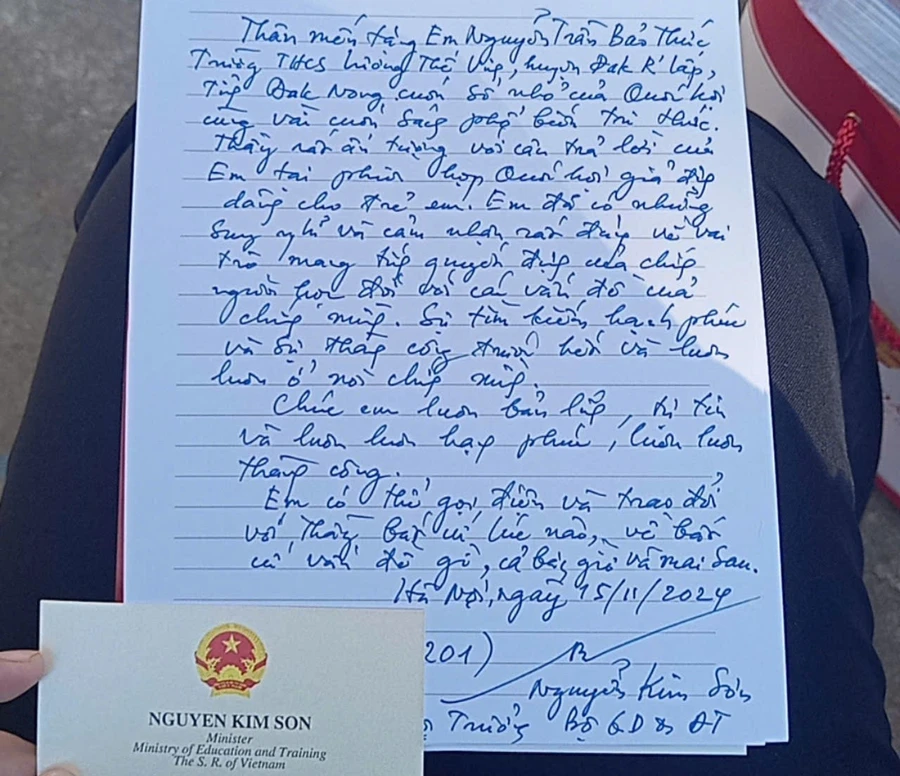 Thân mến tặng Em Nguyễn Trần Bảo Thức
Trường THCS Lương Thế Vinh, huyện Đak R'Lấp,
Tỉnh Đak Nong cuốn sổ nhỏ của Quốc hội
cùng vài cuốn sách phổ biến tri thức.
Thầy rất ấn tượng với câu trả lời của
Em tại phiên họp Quốc hội giả định
dành cho trẻ em. Em đã có những
suy nghĩ và cảm nhận rất đúng về vai
trò mang tính quyết định của chính
người học đối với các vấn đề của
chính mình. Sự tìm kiếm hạnh phúc
và sự thành công trước hết và luôn
luôn ở nơi chính mình.
Chúc em luôn bản lĩnh, tự tin
và luôn luôn hạnh phúc, luôn luôn
thành công.
Em có thể gọi điện và trao đổi
với Thầy bất cứ lúc nào, về bất
cứ vấn đề gì, cả bây giờ và mai sau.
Hà Nội, ngày 15/11/2024
201)
Nguyễn Kim Sơn
Trưởng Bộ GD & ĐT
NGUYEN KIM SON
Minister
Ministry of Education and Training
The S. R. of Vietnam